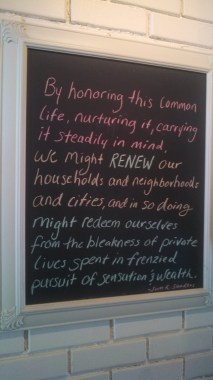 By honoring this common
life, nurturing it, carrying
it steadily in mind,
we might RENEW our
households and neighborhoods
and cities, and in so doing
might redeem ourselves
from the bleakness of private
lives spent in frenzied
pursuit of sensation & wealth.